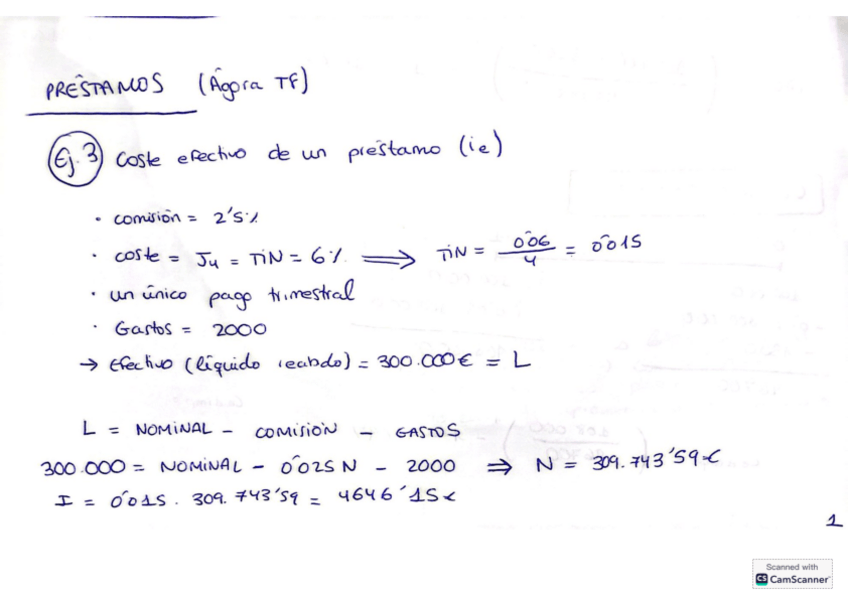 PRÉSTAMOS (Ágora TF)
Ej. 3 Coste efectivo de un préstamo (ie)
• comisión = 2'5%
• coste = J4 = TiN = 6% ⟹ TiN = 0'06/4 = 0'015
• un único pago trimestral
• Gastos = 2000
→ Efectivo (líquido recibido) = 300.000€ = L
L = NOMINAL - COMISIÓN - GASTOS
300.000 = NOMINAL - 0'025N - 2000 ⇒ N = 309.743'59€
I = 0'015 · 309.743'59 = 4646'15€
1
Scanned with
CS CamScanner